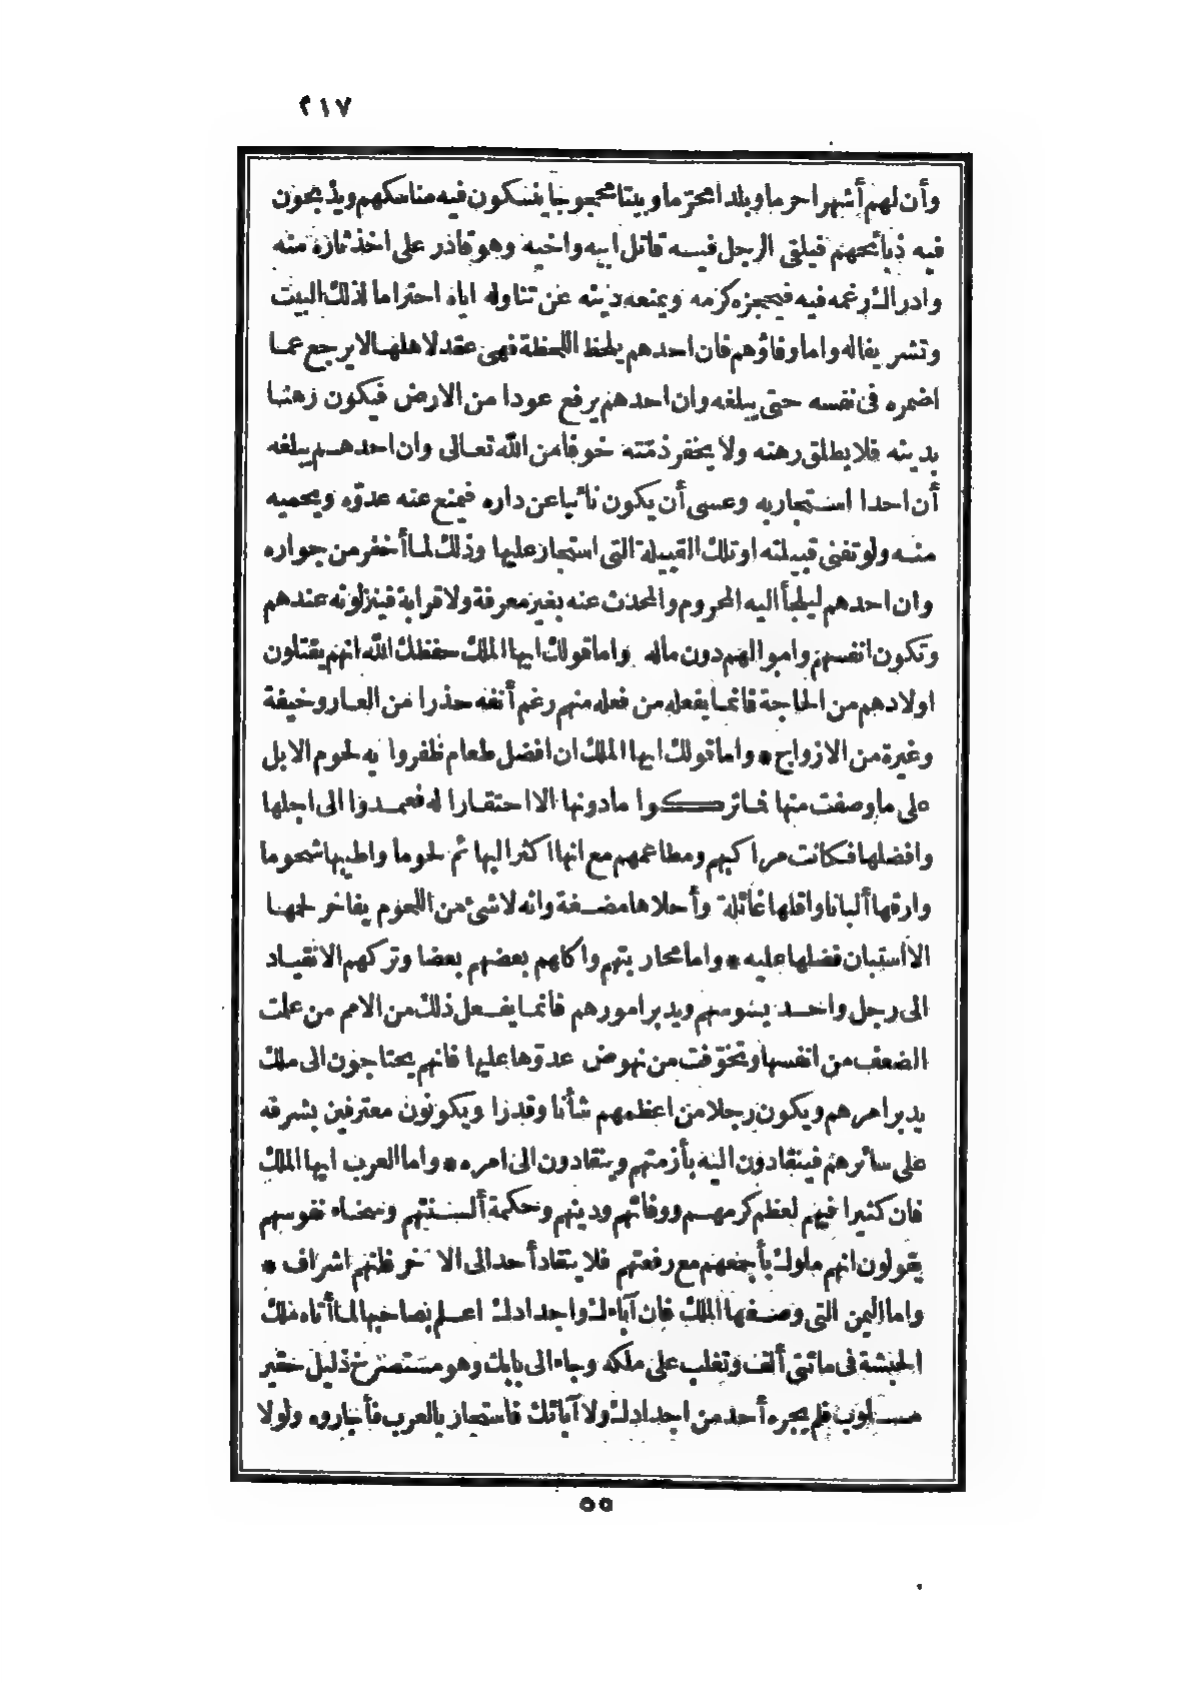 ٢١٧
وأن لهم أشهرا حرما وبلدا محترما وبيتا محجوجا ينسكون فيه مناسكهم ويذبحون
فيه ذبائحهم فيلقى الرجل فيه قاتل ابيه واخيه وهو قادر على اخذ ثاره منه
وادراك رغمه فيه فيحجزه كرمه ويمنعه دينه عن تناوله اياه احتراما لذلك البيت
وتشريفا له واما وفاؤهم فان احدهم يلحظ اللحظة فهى عقد لاهلها لا يرجع عما
اضمره فى نفسه حتى يبلغه وان احدهم يرفع عودا من الارض فيكون رهنا
بدينه فلا يطلق رهنه ولا يخفر ذمّته خوفا من الله تعالى وان احدهم يبلغه
أن احدا استجار به وعسى أن يكون نائبا عن داره فيمنع عنه عدوّه ويحميه
منه ولو تفنى قبيلته او تلك القبيلة التى استجار عليها وذلك لما أخفر من جواره
وان احدهم ليلجأ اليه المحروم والمحدث عنه بغير معرفة ولا قرابة فينزلونه عندهم
وتكون انفسهم واموالهم دون ماله واما قولك ايها الملك حفظك الله انهم يقتلون
اولادهم من الحاجة فانما يفعله من فعله منهم رغم أنفه حذرا من العار وخيفة
وغيرة من الازواج * واما قولك ايها الملك ان افضل طعام ظفروا به لحوم الابل
على ما وصفت منها فما تركوا ما دونها الا احتقارا له فعمدوا الى اجلها
وافضلها فكانت مراكبهم ومطاعمهم مع انها اكثر البهائم لحوما واطيبها شحوما
وارقها ألبانا واقلها غائلة وأحلاها مضغة وانه لا شئ من اللحوم يفاخر لحمها
الا استبان فضلها عليه * واما محاربتهم واكلهم بعضهم بعضا وتركهم الانقياد
الى رجل واحد يسوسهم ويدبر امورهم فانما يفعل ذلك من الامم من علمت
الضعف من انفسها وتخوّفت من نهوض عدوّها عليها فانهم يحتاجون الى ملك
يدبر امرهم ويكون رجلا من اعظمهم شأنا وقدرا ويكونون معترفين بشرفه
على سائرهم فينقادون اليه بأزمتهم وينقادون الى امره * واما العرب ايها الملك
فان كثيرا فيهم لعظم كرمهم ووفائهم ودينهم وحكمة ألسنتهم وسخاء نفوسهم
يقولون انهم ملوك بأجمعهم مع رفعتهم فلا ينقاد أحد الى الاخر فانهم اشراف *
واما اليمن التى وصفها الملك فان آباءك واجدادك اعلم بصاحبها لما أتاه ملك
الحبشة فى مائتى ألف وتغلب على ملكه وجاء الى بابك وهو مستصرخ ذليل حقير
مسلوب فلم يجره أحد من اجدادك ولا آبائك فاستجار بالعرب فأجاروه ولولا
٥٥